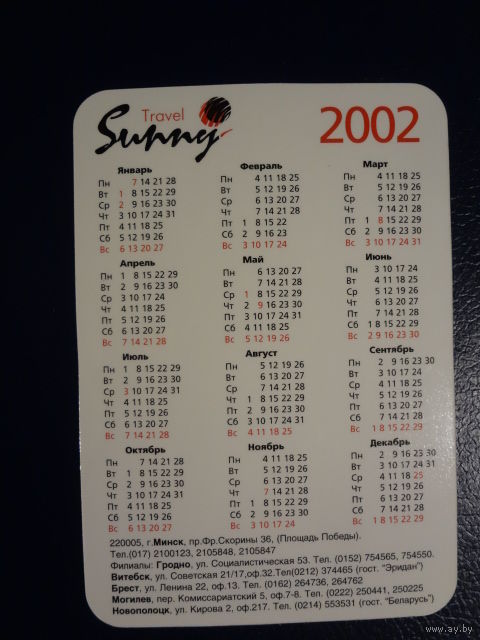 Travel
Sunny
2002
Январь
Пн 7 14 21 28
Вт 1 8 15 22 29
Ср 2 9 16 23 30
Чт 3 10 17 24 31
Пт 4 11 18 25
Сб 5 12 19 26
Вс 6 13 20 27
Февраль
Пн 4 11 18 25
Вт 5 12 19 26
Ср 6 13 20 27
Чт 7 14 21 28
Пт 1 8 15 22
Сб 2 9 16 23
Вс 3 10 17 24
Март
Пн 4 11 18 25
Вт 5 12 19 26
Ср 6 13 20 27
Чт 7 14 21 28
Пт 1 8 15 22 29
Сб 2 9 16 23 30
Вс 3 10 17 24 31
Апрель
Пн 1 8 15 22 29
Вт 2 9 16 23 30
Ср 3 10 17 24
Чт 4 11 18 25
Пт 5 12 19 26
Сб 6 13 20 27
Вс 7 14 21 28
Май
Пн 6 13 20 27
Вт 7 14 21 28
Ср 1 8 15 22 29
Чт 2 9 16 23 30
Пт 3 10 17 24 31
Сб 4 11 18 25
Вс 5 12 19 26
Июнь
Пн 3 10 17 24
Вт 4 11 18 25
Ср 5 12 19 26
Чт 6 13 20 27
Пт 7 14 21 28
Сб 1 8 15 22 29
Вс 2 9 16 23 30
Июль
Пн 1 8 15 22 29
Вт 2 9 16 23 30
Ср 3 10 17 24 31
Чт 4 11 18 25
Пт 5 12 19 26
Сб 6 13 20 27
Вс 7 14 21 28
Август
Пн 5 12 19 26
Вт 6 13 20 27
Ср 7 14 21 28
Чт 1 8 15 22 29
Пт 2 9 16 23 30
Сб 3 10 17 24 31
Вс 4 11 18 25
Сентябрь
Пн 2 9 16 23 30
Вт 3 10 17 24
Ср 4 11 18 25
Чт 5 12 19 26
Пт 6 13 20 27
Сб 7 14 21 28
Вс 1 8 15 22 29
Октябрь
Пн 7 14 21 28
Вт 1 8 15 22 29
Ср 2 9 16 23 30
Чт 3 10 17 24 31
Пт 4 11 18 25
Сб 5 12 19 26
Вс 6 13 20 27
Ноябрь
Пн 4 11 18 25
Вт 5 12 19 26
Ср 6 13 20 27
Чт 7 14 21 28
Пт 1 8 15 22 29
Сб 2 9 16 23 30
Вс 3 10 17 24
Декабрь
Пн 2 9 16 23 30
Вт 3 10 17 24 31
Ср 4 11 18 25
Чт 5 12 19 26
Пт 6 13 20 27
Сб 7 14 21 28
Вс 1 8 15 22 29
220005, г.Минск, пр.Фр.Скорины 36, (Площадь Победы).
Тел.(017) 2100123, 2105848, 2105847
Филиалы: Гродно, ул. Социалистическая 53. Тел. (0152) 754565, 754550.
Витебск, ул. Советская 21/17,оф.32.Тел(0212) 374465 (гост. "Эридан")
Брест, ул. Ленина 22, оф.13. Тел. (0162) 264736, 264762
Могилев, пер. Комиссариатский 5, оф.7-8. Тел. (0222) 250441, 250225
Новополоцк, ул. Кирова 2, оф.217. Тел. (0214) 553531 (гост. "Беларусь")
www.ay.by